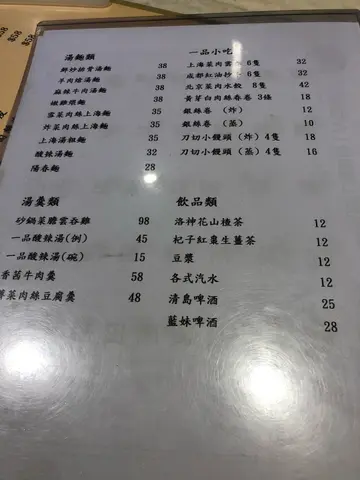 湯麵類
鮮炒撈青湯麵 38
羊肉燴湯麵 38
麻辣牛肉湯麵 38
嫩雞煨麵 38
雪菜肉絲上海麵 35
炸菜肉絲上海麵 35
上海湯粗麵 35
酸辣湯麵 32
陽春麵 28
一品小吃
上海菜肉雲吞 6隻 32
成都紅油抄手 6隻 32
北京菜肉水餃 8隻 42
黃芽白肉絲春卷 3條 18
銀絲卷 (炸) 12
銀絲卷 (蒸) 10
刀切小饅頭 (炸) 4隻 18
刀切小饅頭 (蒸) 4隻 16
湯羹類
砂鍋菜膽雲吞雞 98
一品酸辣湯(例) 45
一品酸辣湯(碗) 15
香茜牛肉羹 58
菜肉絲豆腐羹 48
飲品類
洛神花山楂茶 12
杞子紅棗生薑茶 12
豆漿 12
各式汽水 12
青島啤酒 25
藍妹啤酒 28